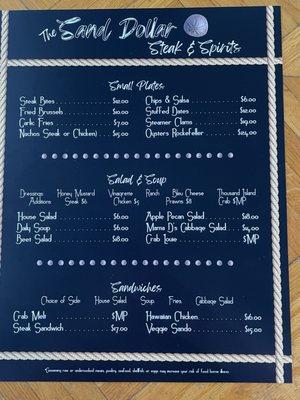 The Sand Dollar
Steak & Spirits
Small Plates
Steak Bites $12.00 Chips & Salsa $6.00
Fried Brussels $10.00 Stuffed Dates $12.00
Garlic Fries $7.00 Steamer Clams $19.00
Nachos Steak or Chicken) $15.00 Oysters Rockefeller $24.00
Salad & Soup
Dressings Honey Mustard Vinaigrette Ranch Bleu Cheese Thousand Island
Additions Steak $6 Chicken $5 Prawns $8 Crab $MP
House Salad $6.00 Apple Pecan Salad $18.00
Daily Soup $6.00 Mama D's Cabbage Salad
Beet Salad $18.00 Crab Louie $MP
Sandwiches
Choice of Side House Salad Soup Fries Cabbage Salad
Crab Melt $MP Hawaiian Chicken $16.00
Steak Sandwich $17.00 Veggie Sando $15.00
Consuming raw or undercooked meats, poultry, seafood, shellfish, or eggs may increase your risk of food borne illness